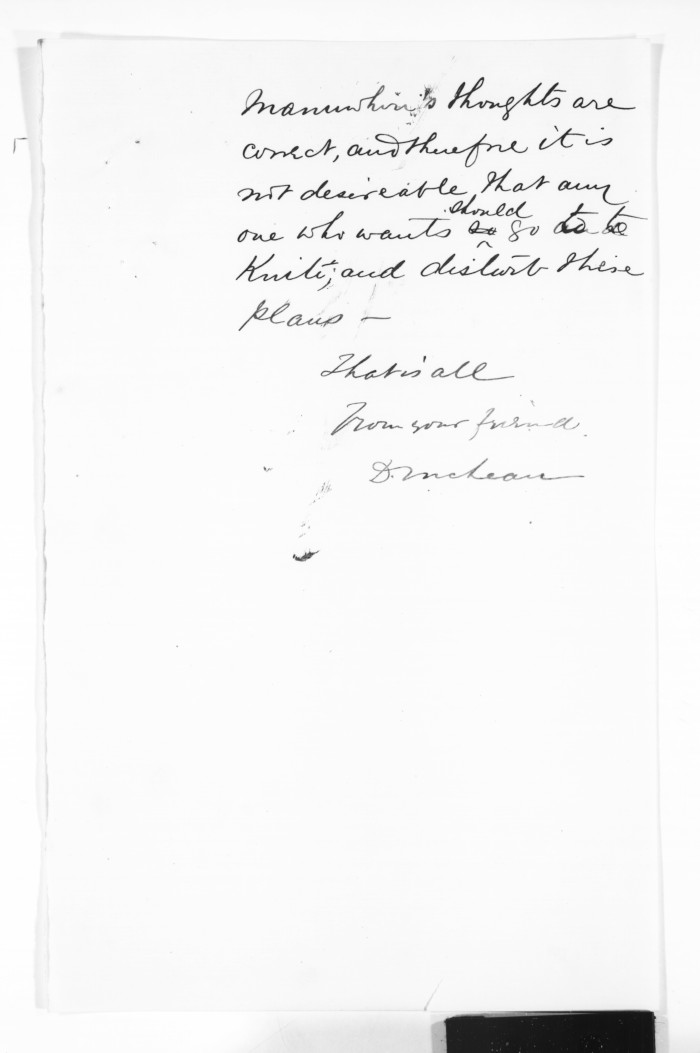 Manuwhiri's thoughts are
correct, and therefore it is
not desireable, that any
one who wants should go to te
Kuiti; and disturb these
plans —
That is all
From your friend.
D. McLean